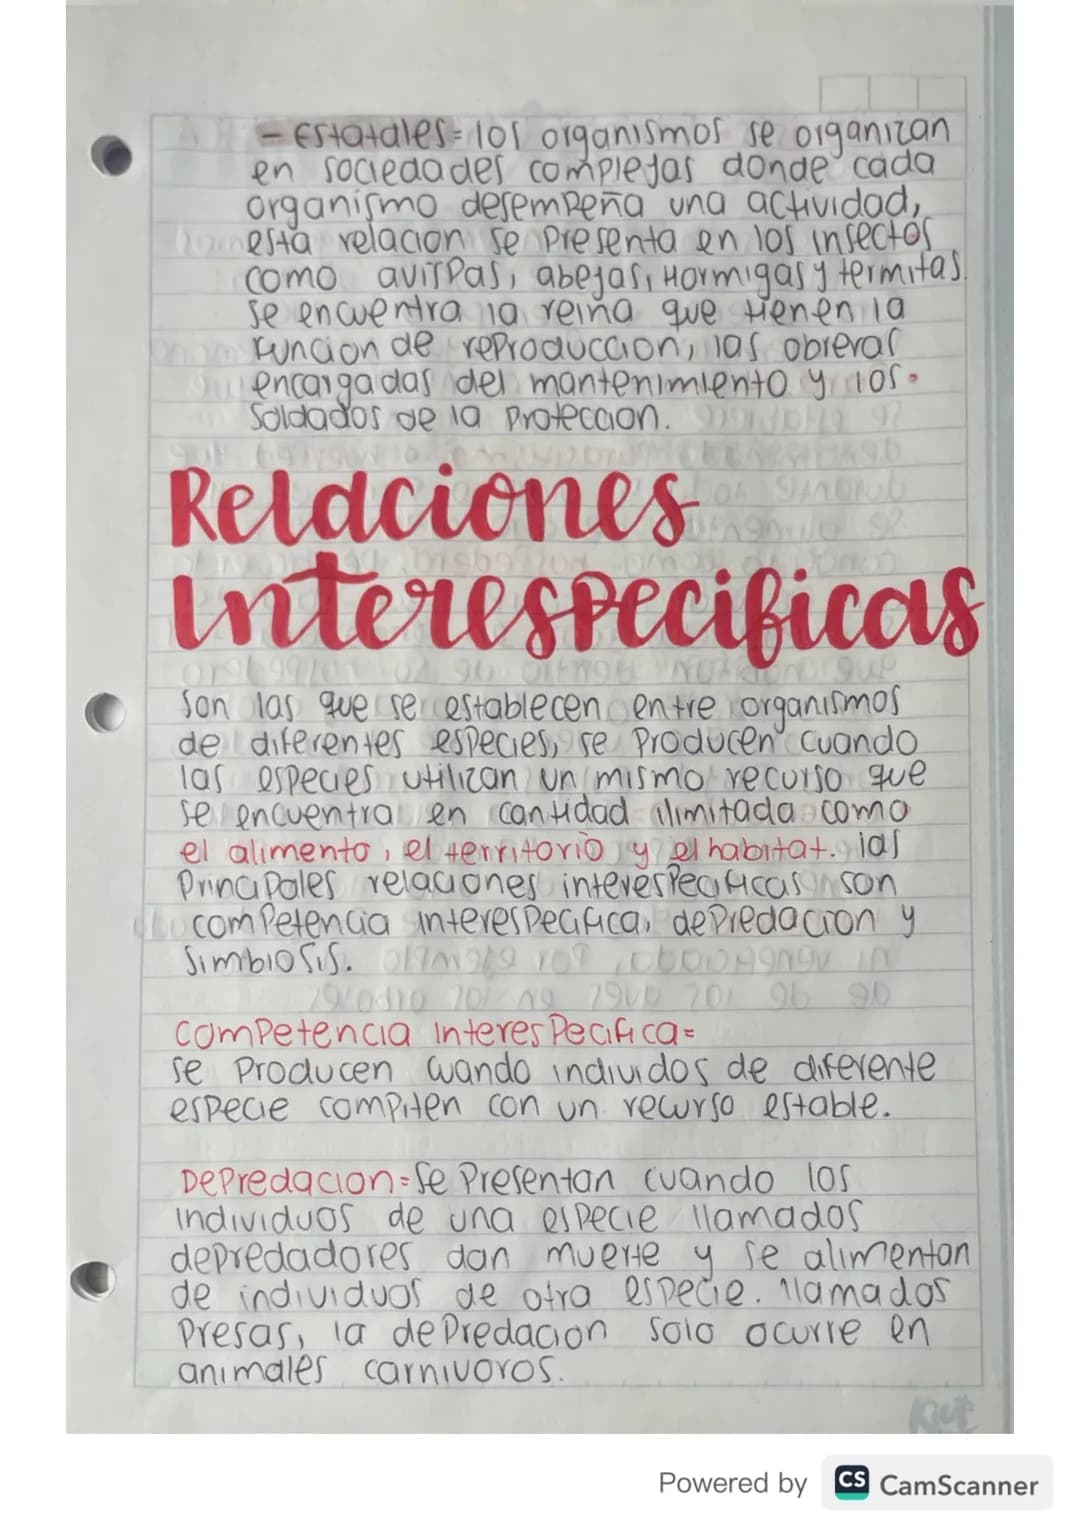 - Estatales= los organismos se organizan
en sociedades complejas donde cada
organismo desempeña una actividad,
esta relacion se presenta en los insectos
como avispas, abejas, Hormigas y termitas.
se encuentra la reina que tienen la
funcion de reproduccion, las obreras
encargadas del mantenimiento y los
Soldados de la Proteccion.
Relaciones
Interespecificas
Son las que se establecen entre organismos
de diferentes especies, se Producen cuando
las especies utilizan un mismo recurso que
se encuentra en cantidad ilimitada como
el alimento, el territorio y el habitat. las
Principales relaciones interespecificas son
competencia interespecifica, depredacion y
Simbiosis.
Competencia Interespecifica=
se Producen cuando individos de diferente
especie compiten con un recurso estable.
Depredacion= Se Presentan cuando los
individuos de una especie llamados
depredadores dan muerte y se alimentan
de individuos de otra especie. llamados
Presas, la depredacion solo ocurre en
animales carnivoros.
Kiut
Powered by CS CamScanner